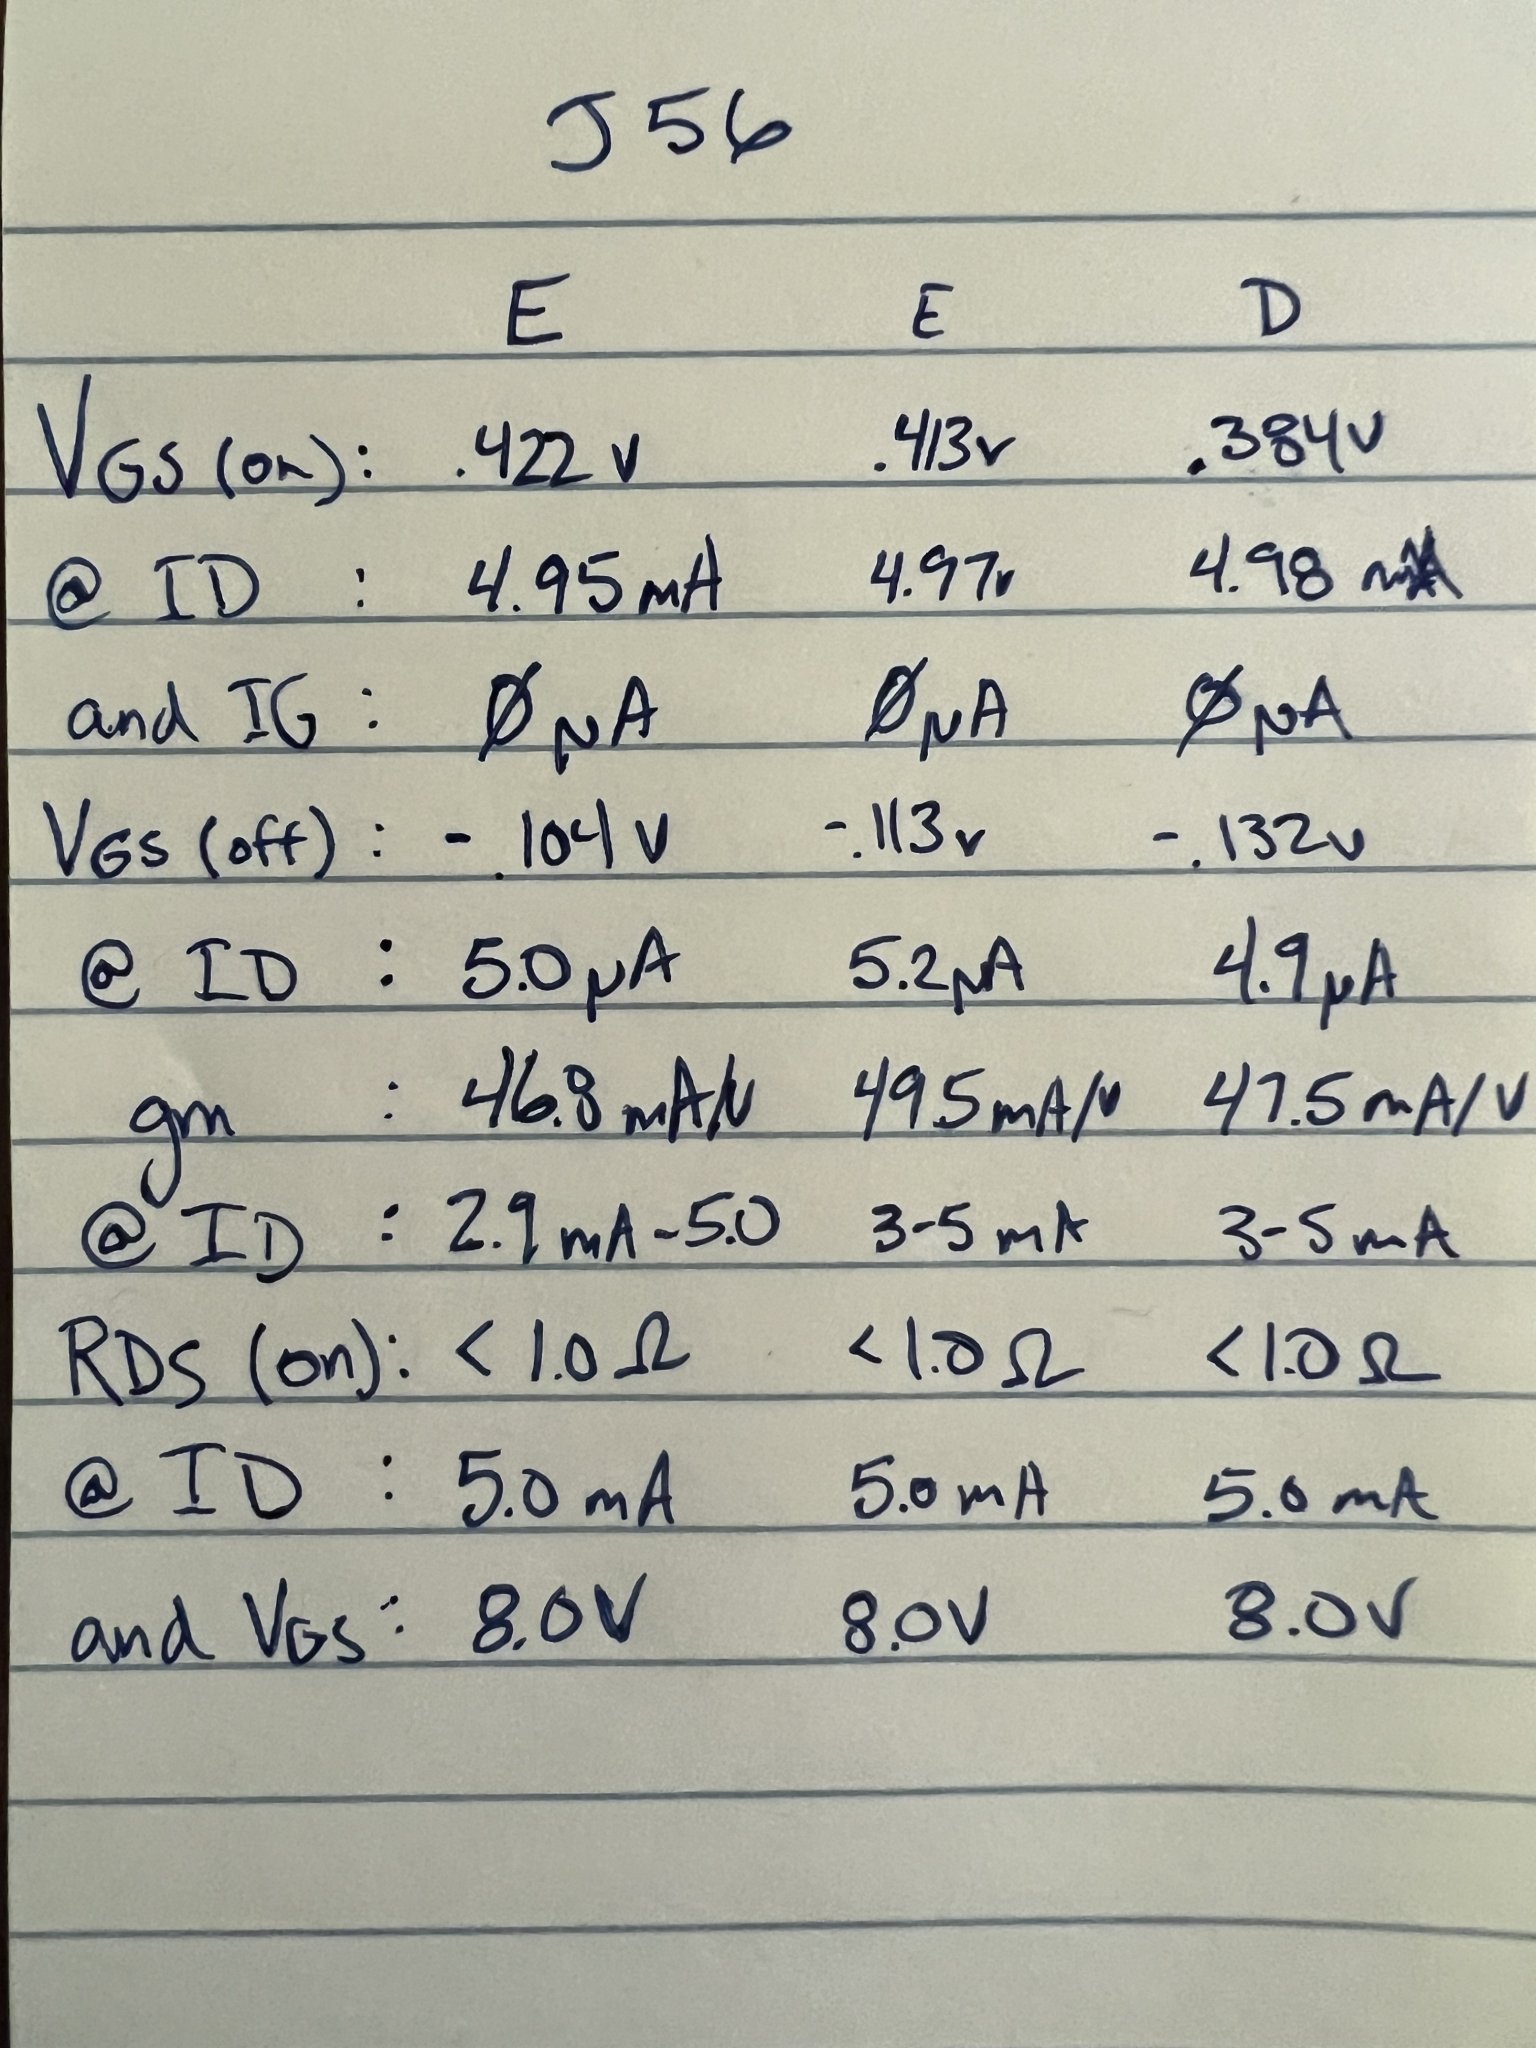 J56
E E D
VGS (on): .422 v .413v .384v
@ ID : 4.95mA 4.97v 4.98 mA
and IG : ØµA ØµA ØµA
VGS (off) : -.104v -.113v -.132v
@ ID : 5.0µA 5.2µA 4.9µA
gm : 46.8mA/V 49.5mA/V 47.5mA/V
@ ID : 2.9mA-5.0 3-5mA 3-5mA
RDS (on): <1.0Ω <1.0Ω <1.0Ω
@ ID : 5.0mA 5.0mA 5.0mA
and VGS: 8.0V 8.0V 8.0V